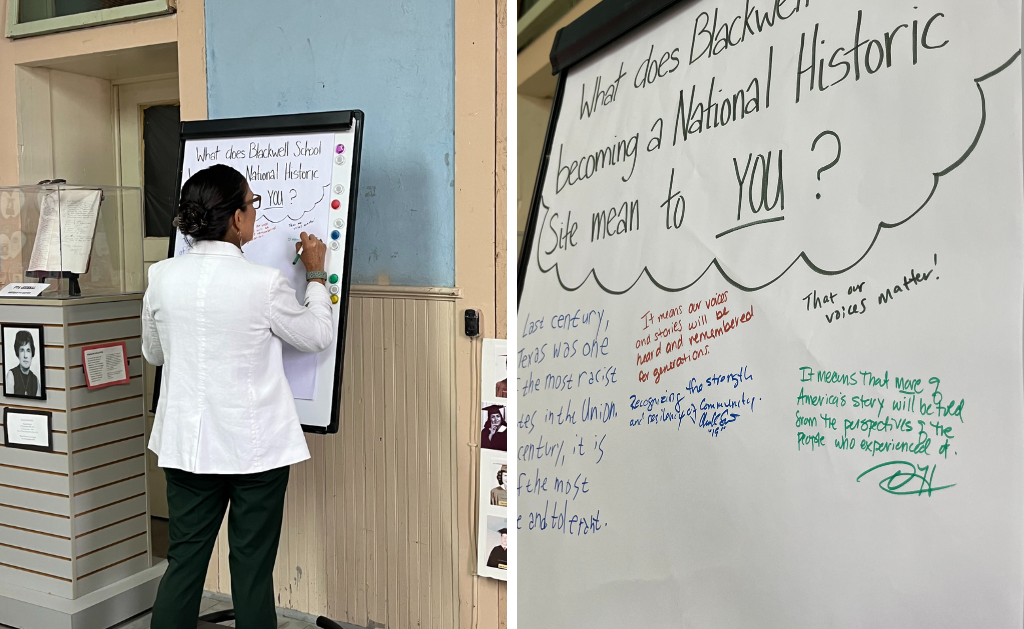 What does Blackwell School
National Historic
YOU ?
What does Blackwell
becoming a National Historic
Site mean to YOU ?
Last century,
Texas was one
the most racist
in the Union.
century, it is
f the most
and tolerant.
It means our voices
and stories will be
heard and remembered
for generations.
Recognizing the strength
and resiliency of Community.
"19"
That our
voices matter!
It means that more of
America's story will be told
from the perspectives of the
people who experienced it.